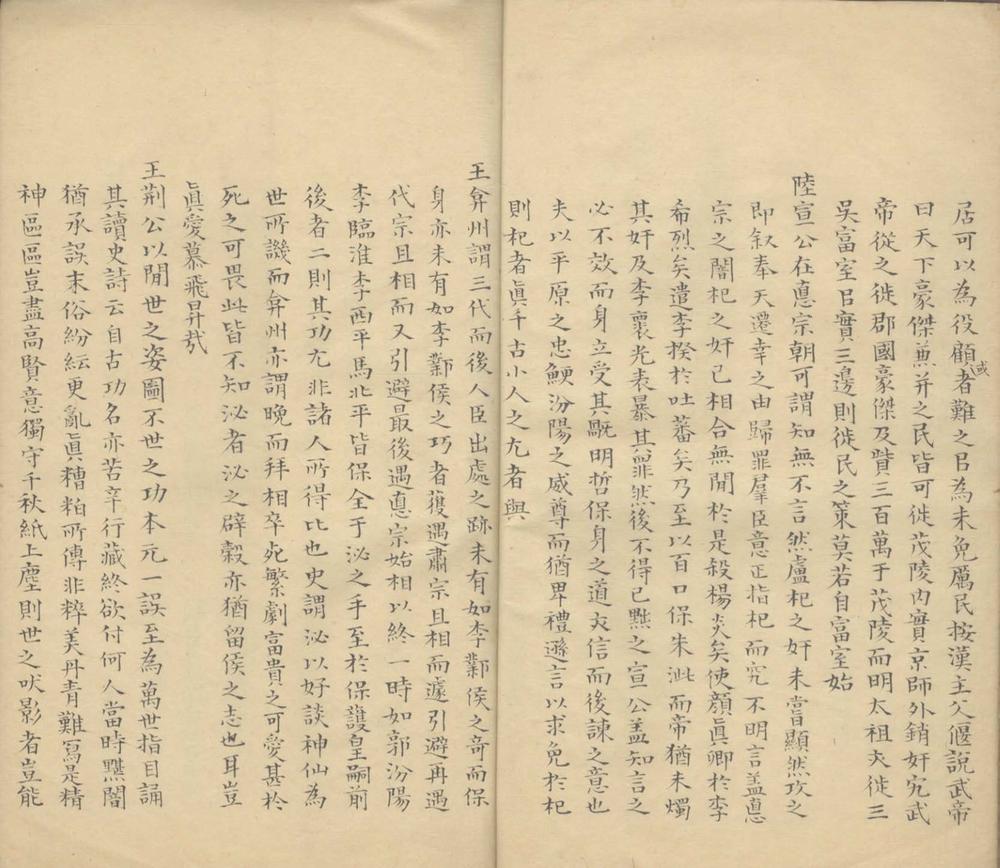 居可以為役顧者難之㠯為未免厲民按漢主父偃說武帝
或
曰天下豪傑兼并之民皆可徙茂陵內實京師外銷奸宄武
帝從之徙郡國豪傑及貲三百萬于茂陵而明太祖夫徙三
吳富室㠯實三邊則徙民之策莫若自富室始
陸宣公在悳宗朝可謂知無不言然盧杞之奸未嘗顯然攻之
即叙奉天遷幸之由歸罪羣臣意正指杞而究不明言盖悳
宗之闇杞之奸已相合無閒於是殺楊炎矣使顏眞卿於李
希烈矣遣李揆於吐蕃矣乃至以百口保朱泚而帝猶未燭
其奸及李褱光表暴其辠然後不得已黜之宣公盖知言之
必不效而身立受其戹明哲保身之道亦信而後諫之意也
夫以平原之忠鯁汾陽之威尊而猶畀禮遜言以求免於杞
則杞者眞千古小人之尤者與
王弇州謂三代而後人臣出處之跡未有如李鄴侯之奇而保
身亦未有如李鄴侯之巧者蒦遇肅宗且相而遽引避再遇
代宗且相而又引避最後遇悳宗始相以終一時如郭汾陽
李臨淮李西平馬北平皆保全于泌之手至於保護皇嗣前
後者二則其功尤非諸人所得比也史謂泌以好談神仙為
世所譏而弇州亦謂晚而拜相卒死繁劇富貴之可愛甚於
死之可畏此皆不知泌者泌之辟穀亦猶留侯之志也耳豈
眞愛慕飛昇㢤
王荆公以閒世之姿圖不世之功本元一誤至為萬世指目誦
其讀史詩云自古功名亦苦辛行藏終欲付何人當時黮闇
猶承誤末俗紛紜更亂眞糟粕所傳非粹美丹青難寫是精
神區區豈盡高賢意獨守千秋紙上塵則世之吠影者豈能